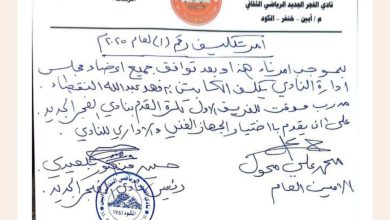 نادي الفجر الجديد الرياضي الثقافي
م / أبين - خنفر - الكود
أمر تكليف رقم (١) لعام ٢٠٢٥م
بموجب أمرنا هذا وبعد توافق جميع أعضاء مجلس
إدارة النادي بتكليف الكابتن / فهد عبدالله النقطاء
مدرب مؤقت للفريف الأول لكرة القدم بنادي الفجر الجديد
على أن يقوم باختيار الجهاز الفني والإداري للنادي
محمد علي محول
الأمين العام
حسين منصور العبدي
رئيس نادي الفجر الجديد
الكود 1961